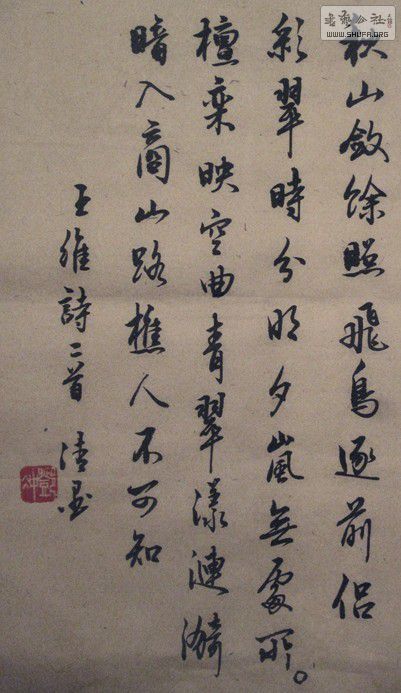 秋山斂餘照飛鳥逐前侶
彩翠時分明夕嵐無處所。
檀欒映空曲青翠漾漣漪
暗入商山路樵人不可知
王維詩二首 清
書藝公社
WWW.SHUFA.ORG